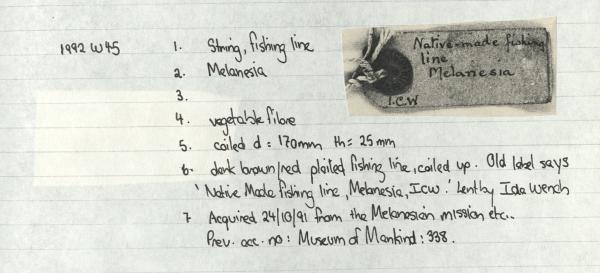 1992 W45
1. String, fishing line
2. Melanesia
3.
4. vegetable fibre
5. coiled d = 170mm th = 25mm
6. dark brown/red plaited fishing line, coiled up. Old label says
'Native Made fishing line, Melanesia, ICW.' Lent by Ida Wench
7 Acquired 24/10/91 from the Melanesian mission etc..
Prev. acc. no: Museum of Mankind: 338.
Native-made fishing
line
Melanesia
I.C.W